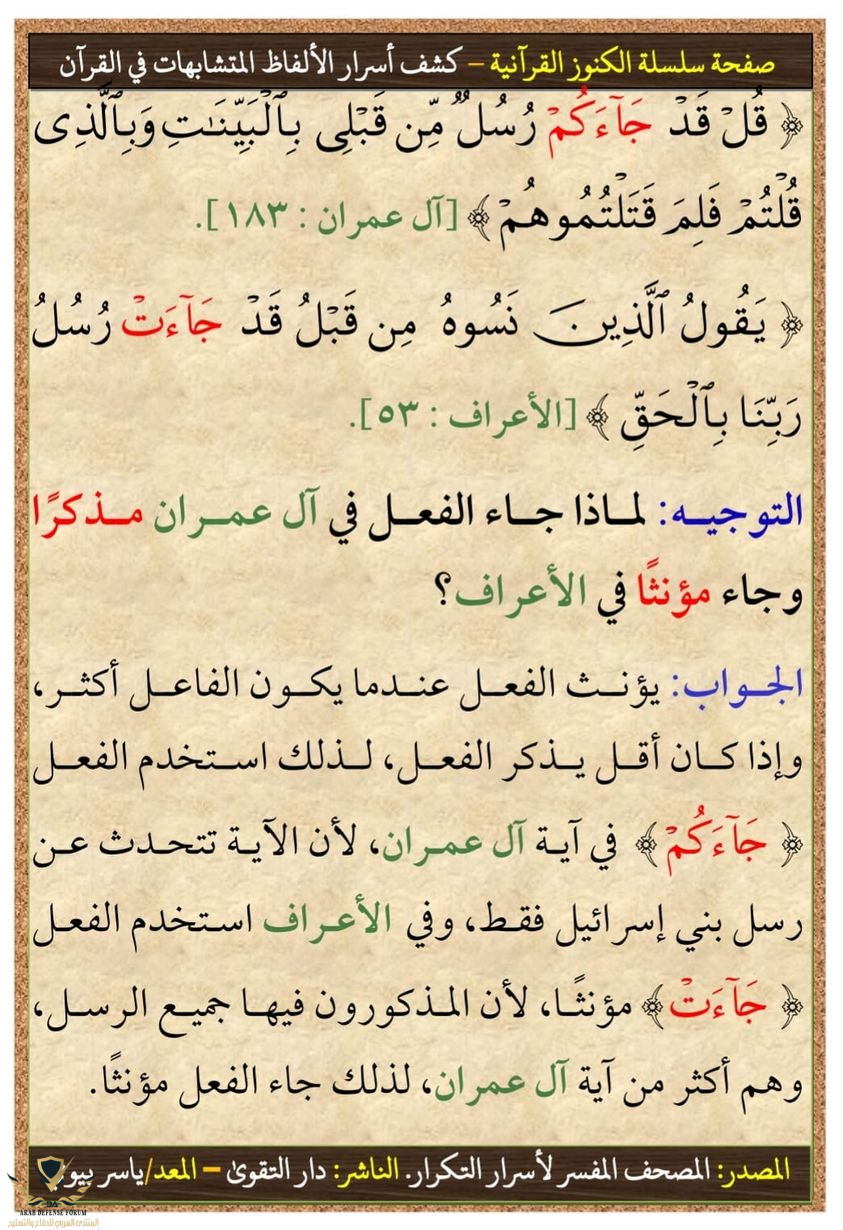 صفحة سلسلة الكنوز القرآنية – كشف أسرار الألفاظ المتشابهات في القرآن
﴿ قُلۡ قَدۡ جَآءَكُمۡ رُسُلٌ مِّن قَبۡلِى بِٱلۡبَيِّنَٰتِ وَبِٱلَّذِى
قُلۡتُمۡ فَلِمَ قَتَلۡتُمُوهُمۡ ﴾ [آل عمران : ١٨٣].
﴿ يَقُولُ ٱلَّذِينَ نَسُوهُ مِن قَبۡلُ قَدۡ جَآءَتۡ رُسُلُ
رَبِّنَا بِٱلۡحَقِّ ﴾ [الأعراف : ٥٣].
التوجيه: لماذا جاء الفعل في آل عمران مذكرًا
وجاء مؤنثًا في الأعراف؟
الجواب: يؤنث الفعل عندما يكون الفاعل أكثر،
وإذا كان أقل يذكر الفعل، لذلك استخدم الفعل
﴿ جَآءَكُمۡ ﴾ في آية آل عمران، لأن الآية تتحدث عن
رسل بني إسرائيل فقط، وفي الأعراف استخدم الفعل
﴿ جَآءَتۡ ﴾ مؤنثًا، لأن المذكورون فيها جميع الرسل،
وهم أكثر من آية آل عمران، لذلك جاء الفعل مؤنثًا.
المصدر: المصحف المفسر لأسرار التكرار. الناشر: دار التقوىٰ – المعد/ياسر بيو
ARAB DEFENSE FORUM
المنتدى العربي للدفاع والتسليح